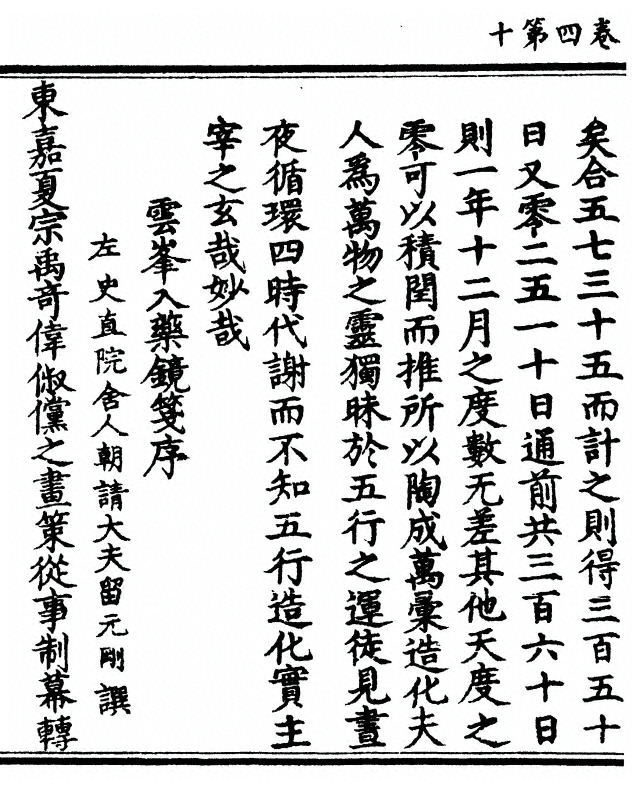 卷四第十
矣合五七三十五而計之則得三百五十
日又零二五一十日通前共三百六十日
則一年十二月之度數无差其他天度之
零可以積閏而推所以陶成萬彙造化夫
人爲萬物之靈獨昧於五行之運徒見晝
夜循環四時代謝而不知五行造化實主
宰之玄哉妙哉
雲峯入藥鏡箋序
左史直院舍人朝請大夫留元剛譔
東嘉夏宗禹奇偉俶儻之畫策從事制幕轉